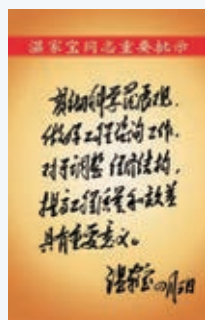 温家宝同志重要批示
贯彻科学发展观，
做好工程咨询工作，
对于调整经济结构，
提高工程质量和效益
具有重要意义。
温家宝 四月五日